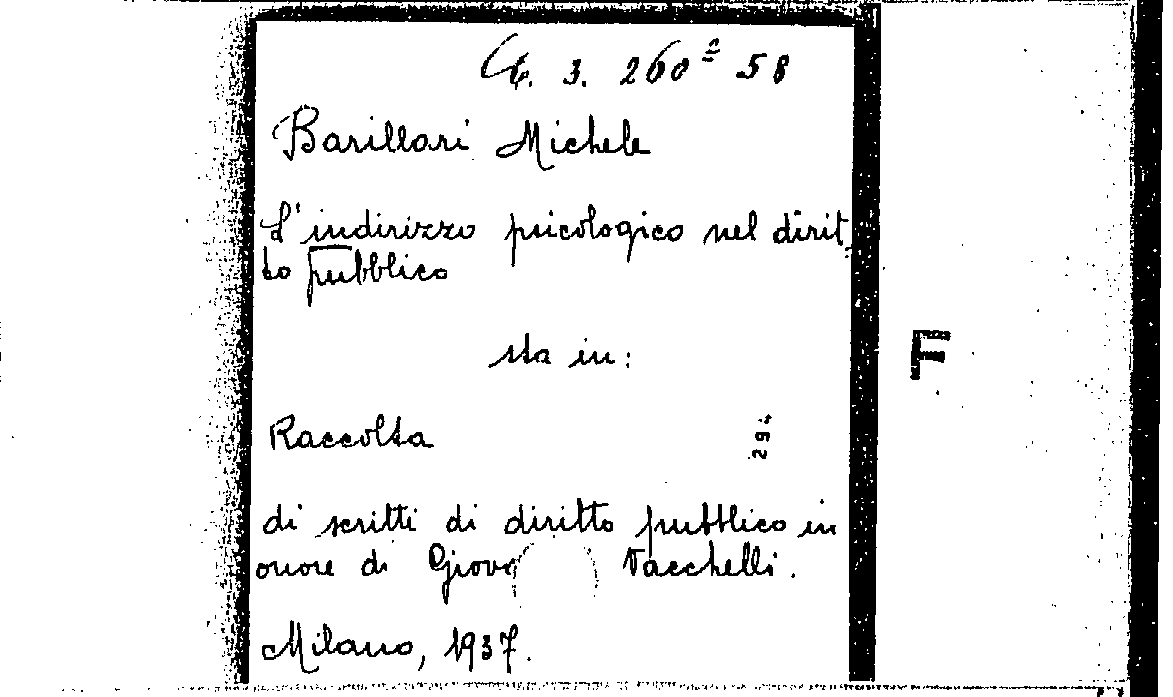 3. 260 = 58
Barillari Michele
L'indirizzo psicologico nel dirit
to pubblico
sta in:
F
Raccolta
294
di scritti di diritto pubblico in
onore di Giova Vacchelli.
Milano, 1937.